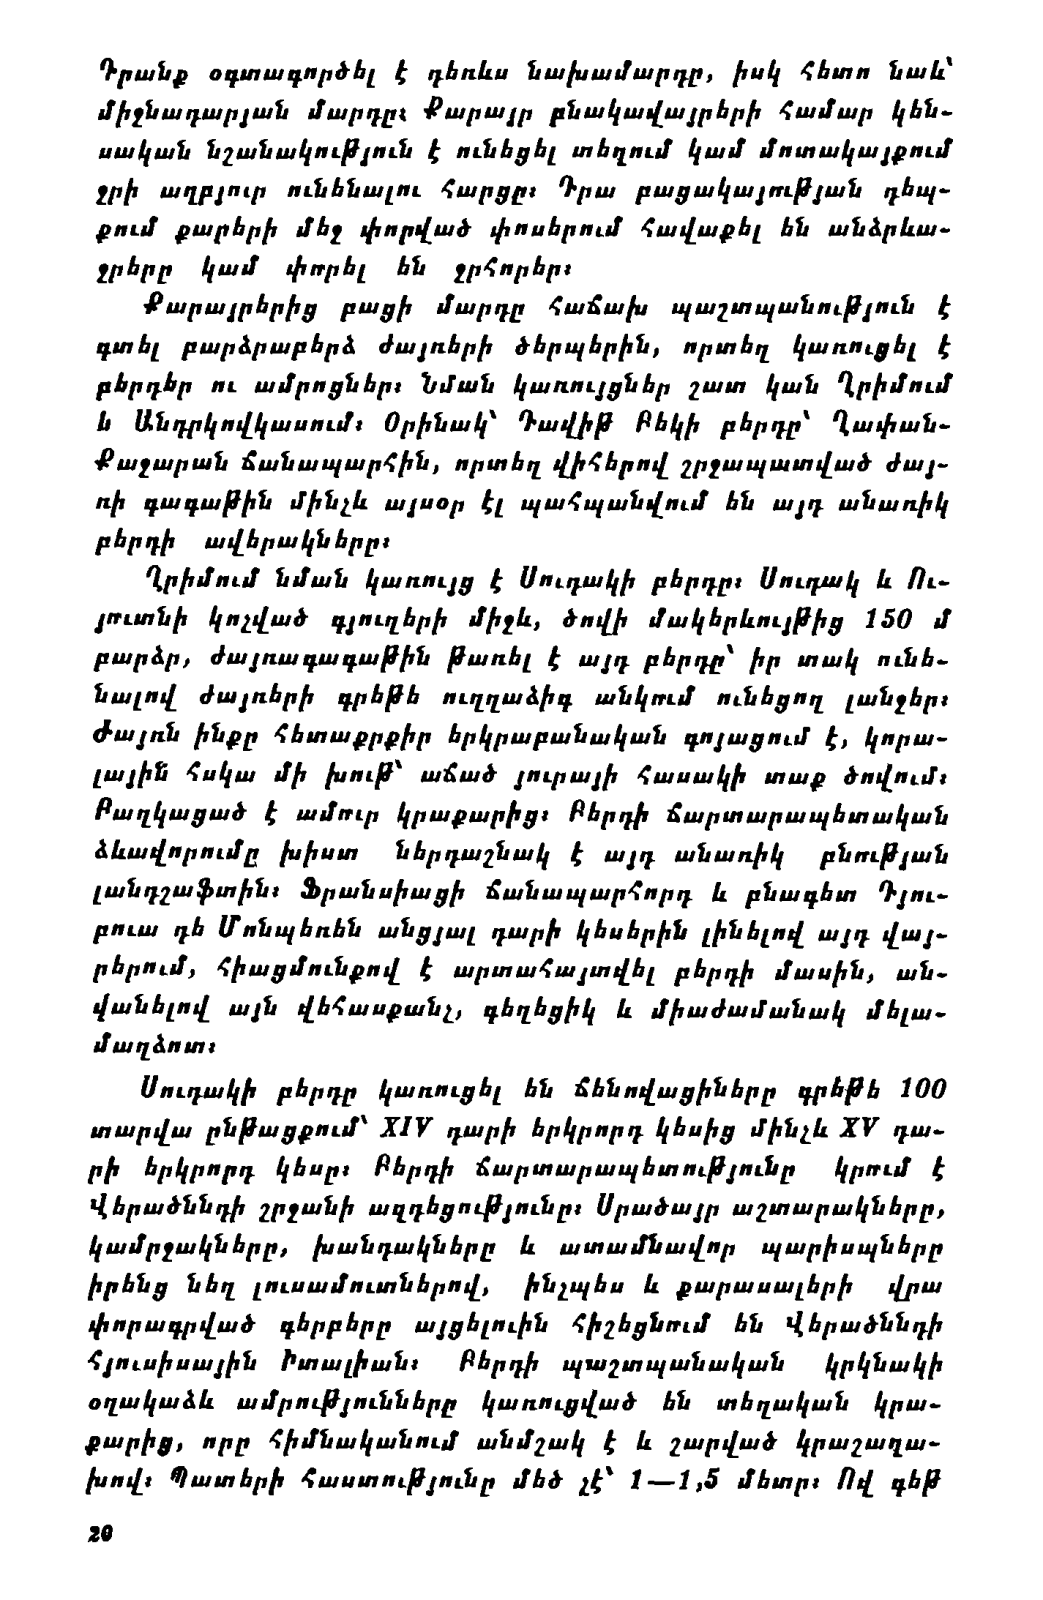 Դրանք օգտագործել է դեռևս նախամարդը, իսկ հետո նաև՝
միջնադարյան մարդը։ Քարայր բնակավայրերի համար կեն-
սական նշանակություն է ունեցել տեղում կամ մոտակայքում
ջրի աղբյուր ունենալու հարցը։ Դրա բացակայության դեպ-
քում քարերի մեջ փորված փոսերում հավաքել են անձրևա-
ջրերը կամ փորել են ջրհորեր։
Քարայրերից բացի մարդը հաճախ պաշտպանություն է
գտել բարձրաբերձ ժայռերի ծերպերին, որտեղ կառուցել է
բերդեր ու ամրոցներ։ Նման կառույցներ շատ կան Ղրիմում
և Անդրկովկասում։ Օրինակ՝ Դավիթ Բեկի բերդը՝ Ղափան-
Քաջարան ճանապարհին, որտեղ վիհերով շրջապատված ժայ-
ռի գագաթին մինչև այսօր էլ պահպանվում են այդ անառիկ
բերդի ավերակները։
Ղրիմում նման կառույց է Սուդակի բերդը։ Սուդակ և Ու-
յուտնի կոչված գյուղերի միջև, ծովի մակերևույթից 150 մ
բարձր, ժայռագագաթին թառել է այդ բերդը՝ իր տակ ունե-
նալով ժայռերի գրեթե ուղղաձիգ անկում ունեցող լանջեր։
Ժայռն ինքը հետաքրքիր երկրաբանական գոյացում է, կորա-
լային հսկա մի խութ՝ աճած յուրայի հասակի տաք ծովում։
Բաղկացած է ամուր կրաքարից։ Բերդի ճարտարապետական
ձևավորումը խիստ ներդաշնակ է այդ անառիկ բնության
լանդշաֆտին։ Ֆրանսիացի ճանապարհորդ և բնագետ Դյու-
բուա դե Մոնպեռեն անցյալ դարի կեսերին լինելով այդ վայ-
րերում, հիացմունքով է արտահայտվել բերդի մասին, ան-
վանելով այն վեհասքանչ, գեղեցիկ և միաժամանակ մելա-
մաղձոտ։
Սուդակի բերդը կառուցել են ճենովացիները գրեթե 100
տարվա ընթացքում՝ XIV դարի երկրորդ կեսից մինչև XV դա-
րի երկրորդ կեսը։ Բերդի ճարտարապետությունը կրում է
Վերածննդի շրջանի ազդեցությունը։ Սրածայր աշտարակները,
կամրջակները, խանդակները և ատամնավոր պարիսպները
իրենց նեղ լուսամուտներով, ինչպես և քարասալերի վրա
փորագրված գերբերը այցելուին հիշեցնում են Վերածննդի
հյուսիսային Իտալիան։ Բերդի պաշտպանական կրկնակի
օղակաձև ամրությունները կառուցված են տեղական կրա-
քարից, որը հիմնականում անմշակ է և շարված կրաշաղա-
խով։ Պատերի հաստությունը մեծ չէ՝ 1—1,5 մետր։ Ով գեթ
20